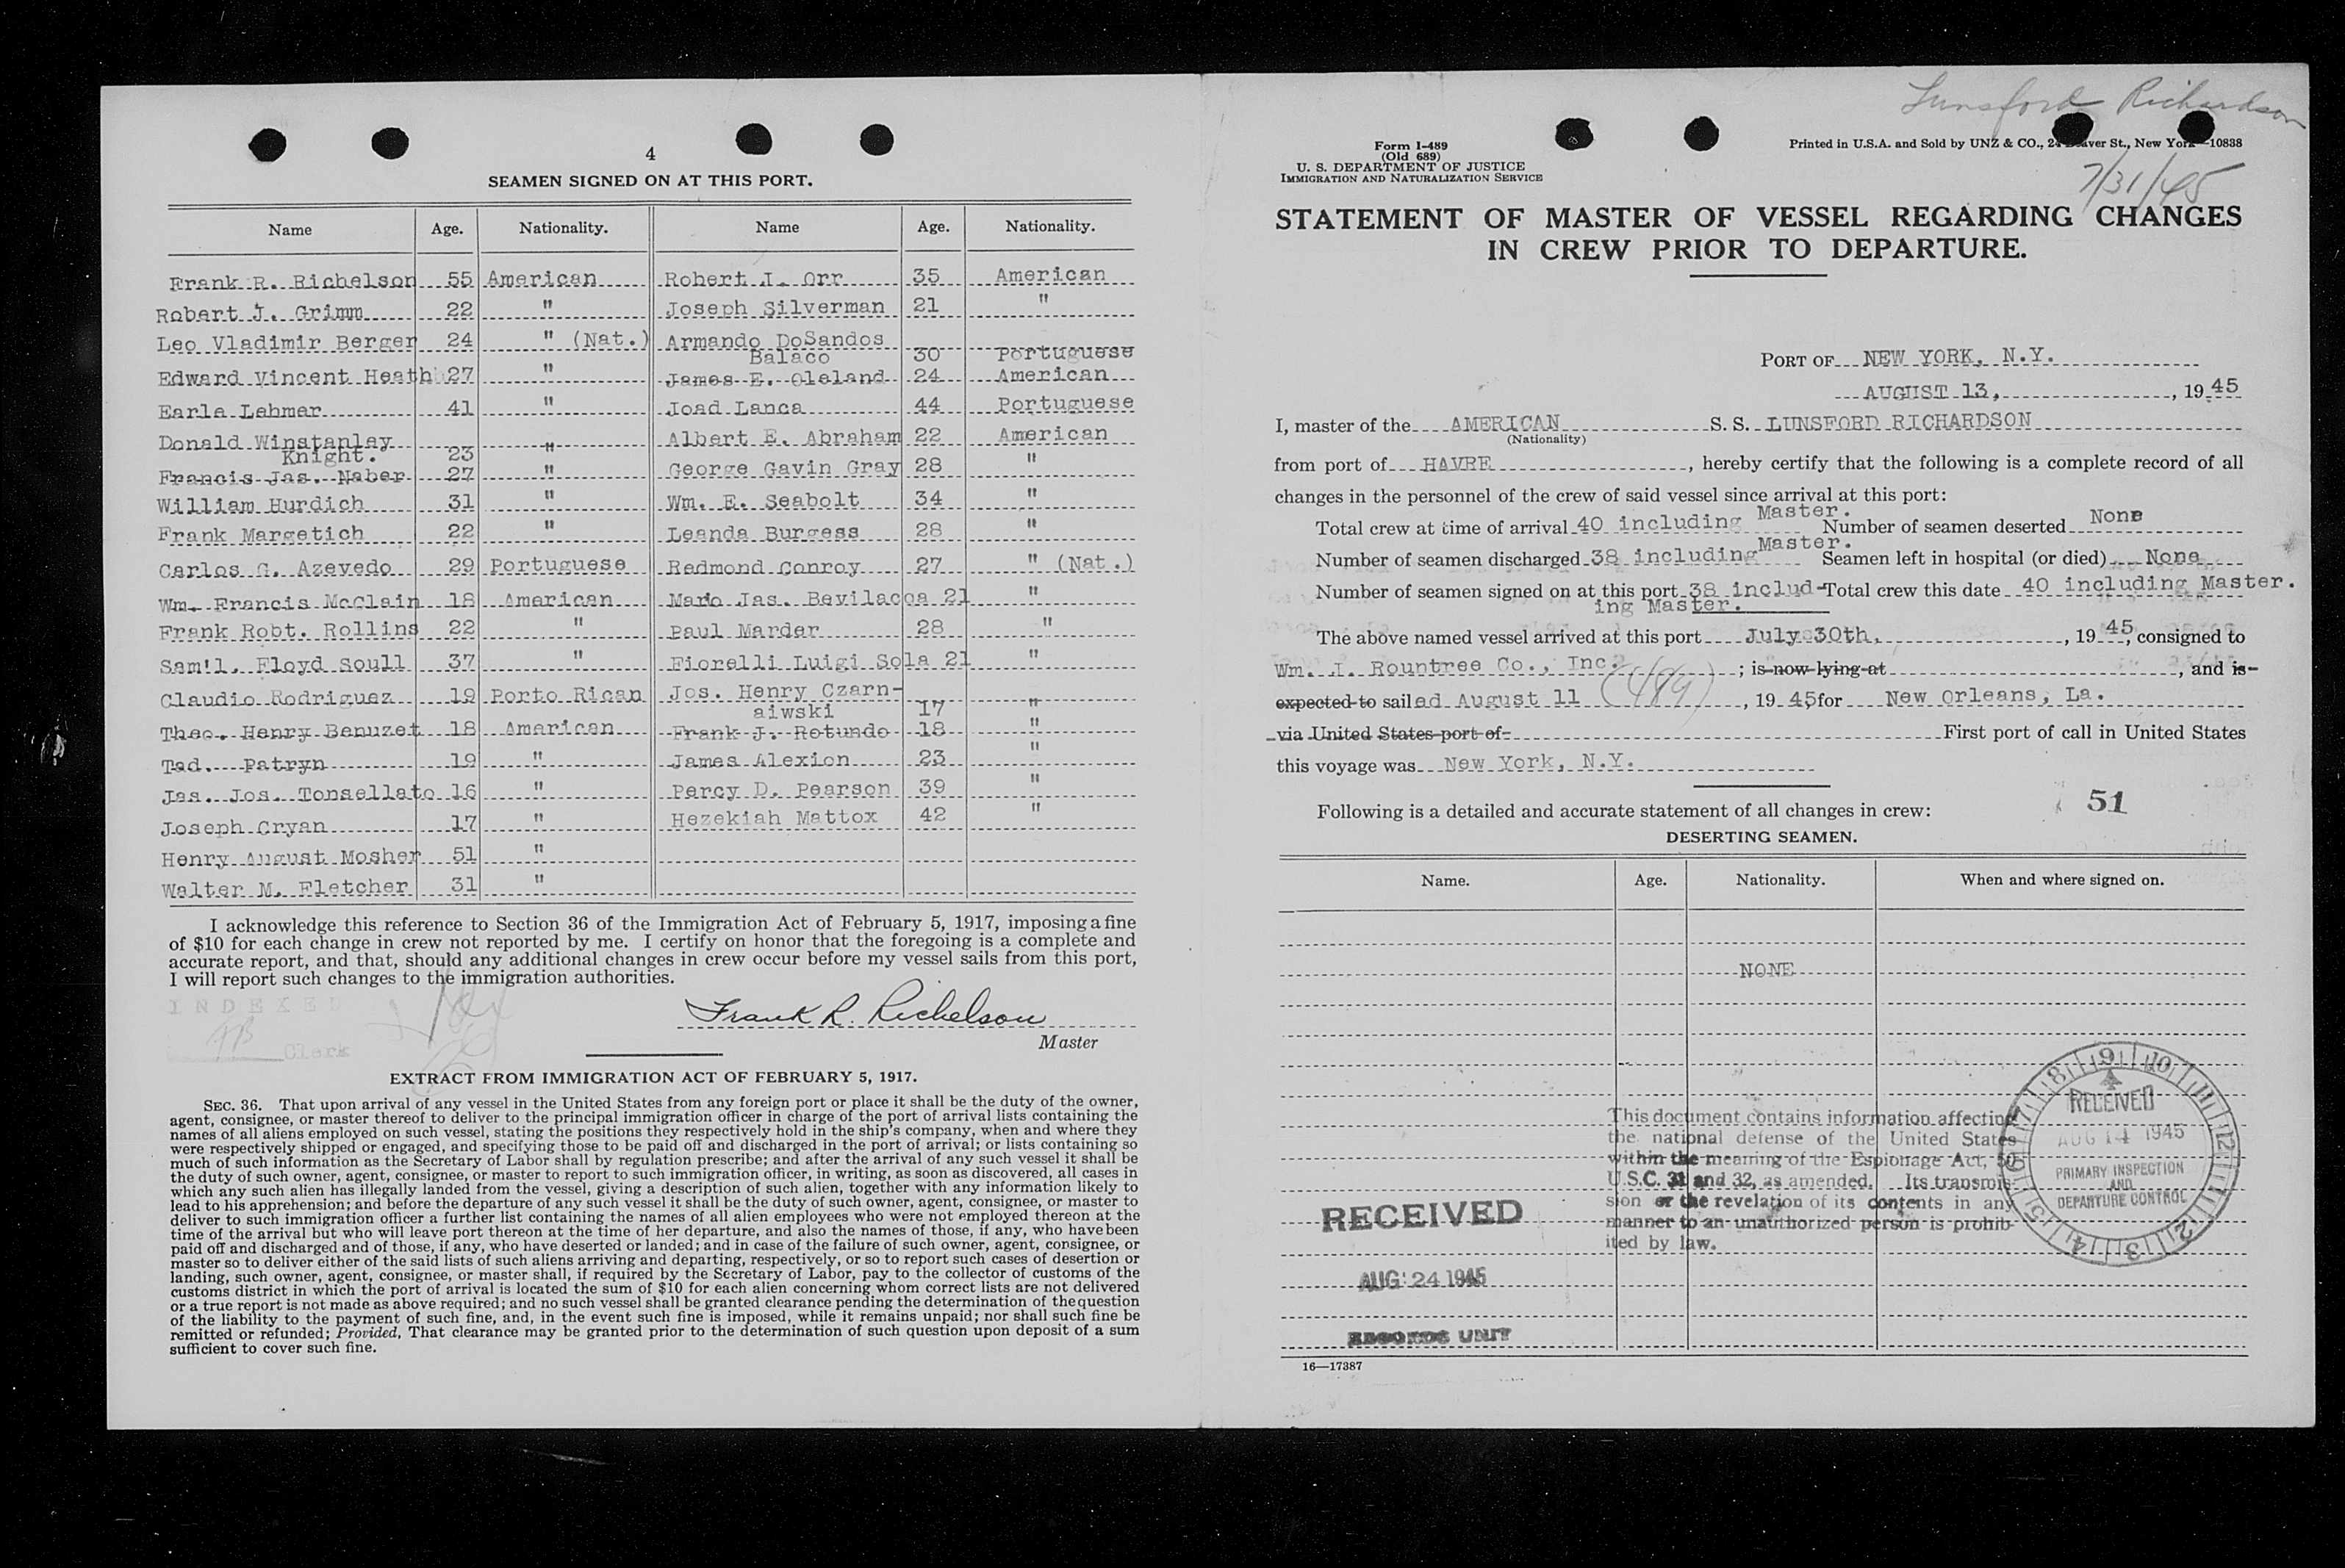 4
SEAMEN SIGNED ON AT THIS PORT.
Name Age. Nationality. Name Age. Nationality.
Frank R. Richelson 55 American Robert J. Orr 35 American
Robert J. Grimm 22 " Joseph Silverman 21 "
Leo Vladimir Berger 24 " (Nat.) Armando DoSandos
Balaco 30 Portuguese
Edward Vincent Heath 27 " James E. Cleland 24 American
Earle Lehmar 41 " Joad Lanca 44 Portuguese
Donald Winstanley Albert E. Abraham 22 American
Knight. 23 "
Francis Jas. Naber 27 " George Gavin Gray 28 "
William Hurdich 31 " Wm. E. Seabolt 34 "
Frank Margetich 22 " Leanda Burgess 28 "
Carlos G. Azevedo 29 Portuguese Redmond Conroy 27 " (Nat.)
Wm. Francis McClain 18 American Mario Jas. Bevilacqa 21 "
Frank Robt. Rollins 22 " Paul Marder 28 "
Sam'l. Floyd Soull 37 " Fiorelli Luigi Sola 21 "
Claudio Rodriguez 19 Porto Rican Jos. Henry Czarn-
aiwski 17 "
Theo. Henry Benuzet 18 American Frank J. Rotundo 18 "
Tad. Patryn 19 " James Alexion 23 "
Jas. Jos. Tonsellato 16 " Percy D. Pearson 39 "
Joseph Cryan 17 " Hezekiah Mattox 42 "
Henry August Mosher 51 "
Walter M. Fletcher 31 "
I acknowledge this reference to Section 36 of the Immigration Act of February 5, 1917, imposing a fine
of $10 for each change in crew not reported by me. I certify on honor that the foregoing is a complete and
accurate report, and that, should any additional changes in crew occur before my vessel sails from this port,
I will report such changes to the immigration authorities.
INDEXED
Clerk
Frank R. Richelson
Master
EXTRACT FROM IMMIGRATION ACT OF FEBRUARY 5, 1917.
SEC. 36. That upon arrival of any vessel in the United States from any foreign port or place it shall be the duty of the owner,
agent, consignee, or master thereof to deliver to the principal immigration officer in charge of the port of arrival lists containing the
names of all aliens employed on such vessel, stating the positions they respectively hold in the ship's company, when and where they
were respectively shipped or engaged, and specifying those to be paid off and discharged in the port of arrival; or lists containing so
much of such information as the Secretary of Labor shall by regulation prescribe; and after the arrival of any such vessel it shall be
the duty of such owner, agent, consignee, or master to report to such immigration officer, in writing, as soon as discovered, all cases in
which any such alien has illegally landed from the vessel, giving a description of such alien, together with any information likely to
lead to his apprehension; and before the departure of any such vessel it shall be the duty of such owner, agent, consignee, or master to
deliver to such immigration officer a further list containing the names of all alien employees who were not employed thereon at the
time of the arrival but who will leave port thereon at the time of her departure, and also the names of those, if any, who have been
paid off and discharged and of those, if any, who have deserted or landed; and in case of the failure of such owner, agent, consignee, or
master so to deliver either of the said lists of such aliens arriving and departing, respectively, or so to report such cases of desertion or
landing, such owner, agent, consignee, or master shall, if required by the Secretary of Labor, pay to the collector of customs of the
customs district in which the port of arrival is located the sum of $10 for each alien concerning whom correct lists are not delivered
or a true report is not made as above required; and no such vessel shall be granted clearance pending the determination of the question
of the liability to the payment of such fine, and, in the event such fine is imposed, while it remains unpaid; nor shall such fine be
remitted or refunded; Provided, That clearance may be granted prior to the determination of such question upon deposit of a sum
sufficient to cover such fine.
Lunsford Richardson
Form I-489
(Old 689)
U. S. DEPARTMENT OF JUSTICE
IMMIGRATION AND NATURALIZATION SERVICE
Printed in U.S.A. and Sold by UNZ & CO., 24 St., New York—10838
7/31/45
STATEMENT OF MASTER OF VESSEL REGARDING CHANGES
IN CREW PRIOR TO DEPARTURE.
PORT OF NEW YORK, N.Y.
AUGUST 13, , 19 45
I, master of the AMERICAN S. S. LUNSFORD RICHARDSON
(Nationality)
from port of HAVRE , hereby certify that the following is a complete record of all
changes in the personnel of the crew of said vessel since arrival at this port:
Total crew at time of arrival 40 including Master. Number of seamen deserted None
Number of seamen discharged 38 including Master. Seamen left in hospital (or died) None
Number of seamen signed on at this port 38 includ- Total crew this date 40 including Master.
ing Master.
The above named vessel arrived at this port July 30th, , 19 45, consigned to
Wm. J. Rountree Co., Inc. ; is now lying at , and is
expected to sailed August 11 (489) , 19 45 for New Orleans, La.
via United States port of First port of call in United States
this voyage was New York, N.Y.
Following is a detailed and accurate statement of all changes in crew: 51
DESERTING SEAMEN.
Name. Age. Nationality. When and where signed on.
NONE
This document contains information affecting
the national defense of the United States
within the meaning of the Espionage Act, 50
U.S.C. 31 and 32, as amended. Its transmis-
sion or the revelation of its contents in any
manner to an unauthorized person is prohib-
ited by law.
RECEIVED
AUG 14 1945
PRIMARY INSPECTION
AND
DEPARTURE CONTROL
RECEIVED
AUG 24 1945
RECORDS UNIT
16—17387